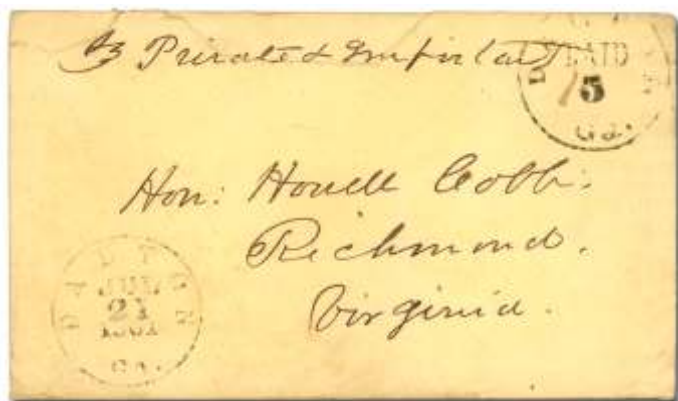 Private & Important
PAID
5
Ga.
Hon: Howell Cobb.
Richmond.
Virginia.
DALTON
JUL
21
1861
GA.